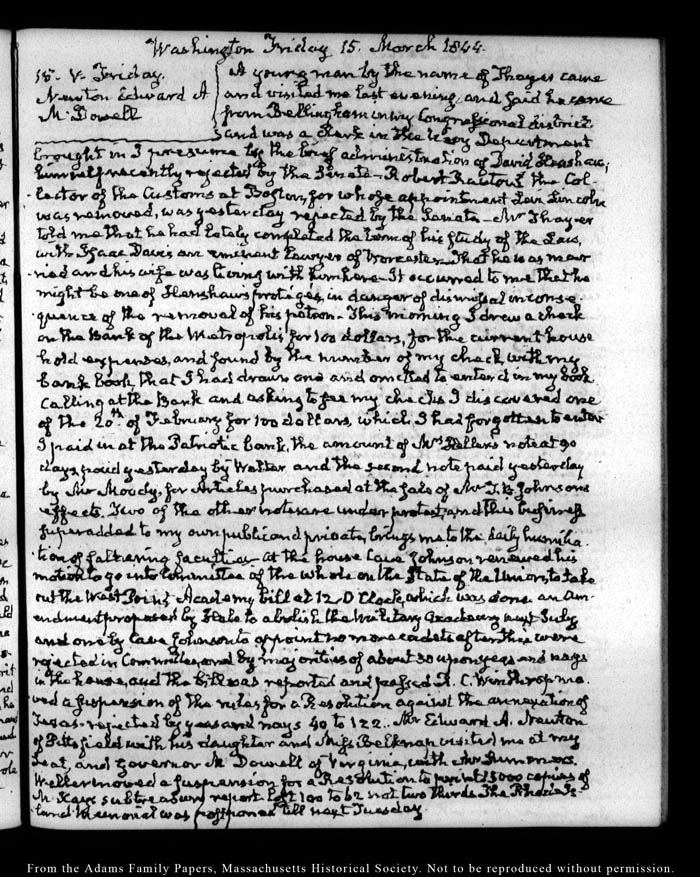 Washington Friday 15. March 1844.
15. V. Friday.
Newton Edward A
McDowell
A young man by the name of Thayer came
and visited me last evening, and said he came
from Bellingham in my Congressional district
and was a clerk in the Navy Department
brought in I presume by the brief administration of David Henshaw;
himself recently rejected by the Senate — Robert Rantoul the Col-
lector of the Customs at Boston, for whose appointment Levi Lincoln
was removed, was yesterday rejected by the Senate — Mr Thayer
told me that he had lately completed the term of his study of the Law,
with Isaac Davis an eminent Lawyer of Worcester — That he was mar-
ried and his wife was living with him here — It occurred to me that he
might be one of Henshaw's protégés, in danger of dismissal in conse-
quence of the removal of his patron. This morning I drew a check
on the Bank of the Metropolis for 100 dollars, for the current house
hold expenses, and found by the number of my check, with my
bank book, that I had drawn one and omitted to enter it in my book
Calling at the Bank and asking to see my checks I discovered one
of the 20th of February for 100 dollars, which I had forgotten to enter
I paid in at the Patriotic bank, the amount of Mrs note at 90
days paid yesterday by Walter and the second note paid yesterday
by Mr Moody, for Articles purchased at the sale of Mr T. B. Johnson's
effects. Two of the other notes are under protest, and this business
superadded to my own public and private, brings me to the daily humilia-
tion of faltering faculties — At the house Cave Johnson renewed his
motion to go into Committee of the whole on the State of the Union, to take
out the West Point Academy bill at 12 O'Clock, which was done. An am-
endment proposed by Hale to abolish the Military Academy next July
and one by Cave Johnson to appoint no more cadets after this were
rejected in Committee, and by majorities of about 30 upon yeas and nays
in the house, and the bill was reported and passed R. C. Winthrop mo-
ved a suspension of the rules for a Resolution against the annexation of
Texas — rejected by yeas and nays 40 to 122. Mr Edward A. Newton
of Pittsfield with his daughter and Miss Belknap visited me at my
seat, and Governor McDowell of Virginia, with Mr Summers.
Weller moved a suspension for a Resolution to print 15000 copies of
McKay's subtreasury report lost 100 to 62 not two thirds The Rhode Is-
land Memorial was postponed till next Tuesday.
From the Adams Family Papers, Massachusetts Historical Society. Not to be reproduced without permission.